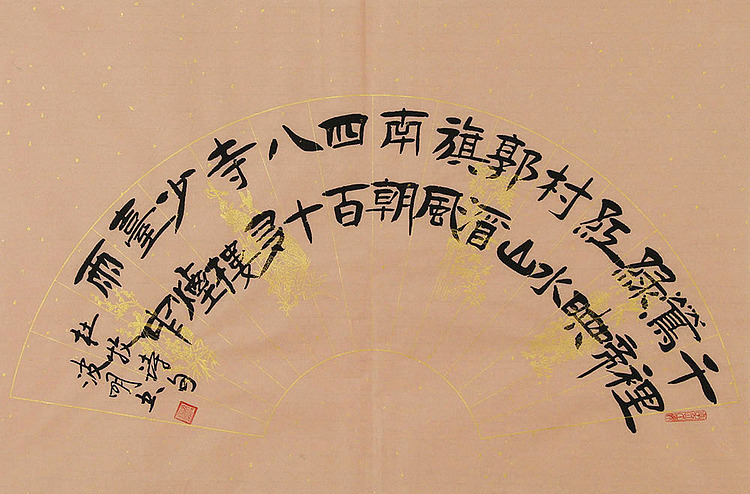 千裡
鶯啼
綠映
紅水
村山
郭酒
旗風
南朝
四百
八十
寺多
少樓
臺煙
雨中
杜牧詩句
波明书